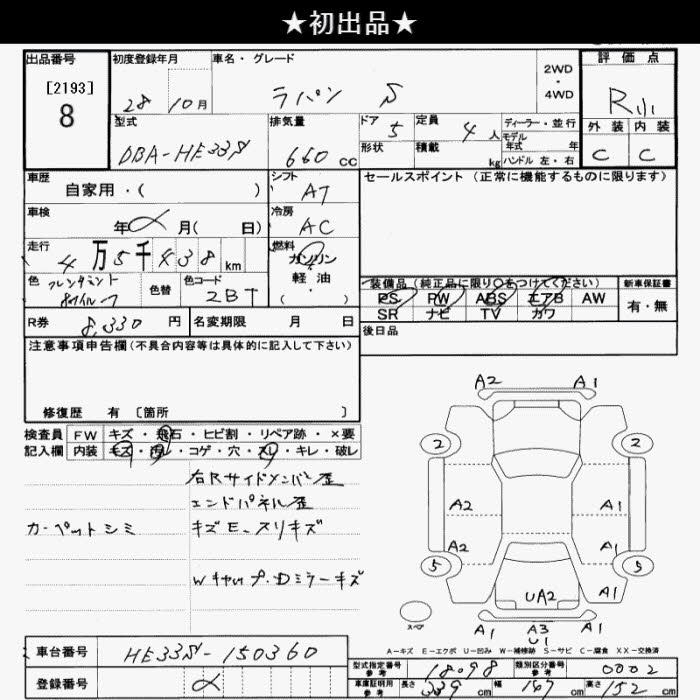 ★初出品★
出品番号
[2193]
8
初度登録年月
28 10月
車名・グレード
ラパン S
2WD
・
4WD
評価点
R小
外装 内装
C C
型式
DBA-HE33S
排気量
660 cc
ドア 5
形状
定員 4 人
積載 kg
ディーラー・並行
モデル
年式 年
ハンドル 左・右
車歴
自家用・( )
シフト
AT
セールスポイント (正常に機能するものに限ります)
車検
年 月( 日)
冷房
AC
走行
4万5千438 km
燃料
ガソリン
・
軽油
( )
色 フレンチミント
色替
色コード
ZBT
装備品(純正品に限り○をつけてください)
PS PW ABS エアB AW
SR ナビ TV カワ
新車保証書
有・無
R券 8,330 円
名変期限 月 日
後日品
注意事項申告欄(不具合内容等は具体的に記入して下さい)
修復歴 有 〔箇所 〕
検査員
記入欄
FW キズ・飛石・ヒビ割・リペア跡・×要
内装 キズ・汚レ・コゲ・穴・スレ・キレ・破レ
右Rサイドメンバー歪
エンドパネル歪
カーペットシミ
キズE、スリキズ
Wキャップ・Dミラーキズ
A2 A1
2 2
A2 A1
A2 A1
5 5
UA2 A1
スペア
A1 A3 A1
U1
A-キズ E-エクボ U-凹み W-補修跡 S-サビ C-腐食 XX-交換済
車台番号 HE33S-150360
登録番号
型式指定番号
参考
18098
類別区分番号
参考
0002
車庫証明用
参考
長さ 339 cm 幅 147 cm 高さ 152 cm